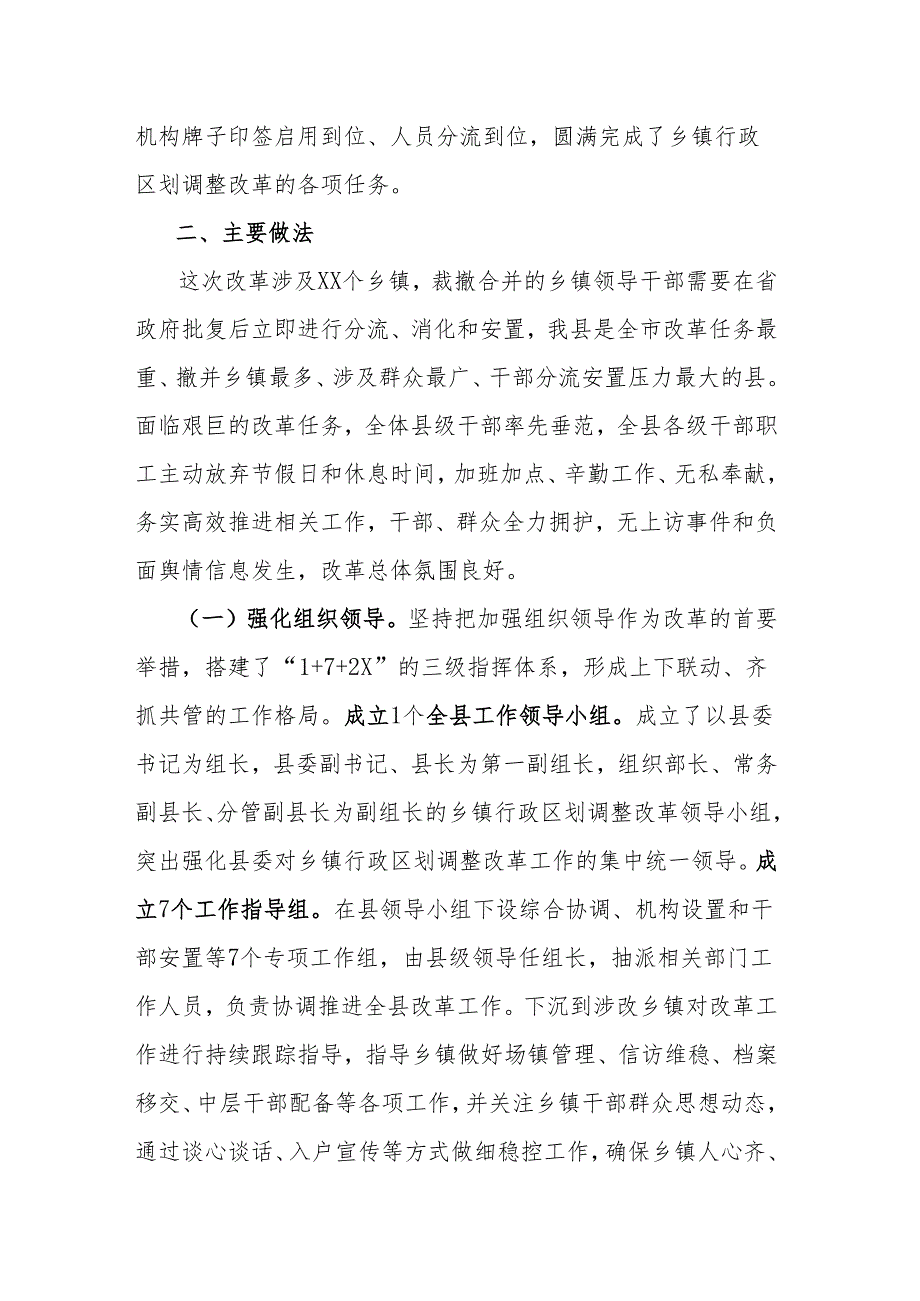 机构牌子印签启用到位、人员分流到位，圆满完成了乡镇行政
区划调整改革的各项任务。
二、主要做法
这次改革涉及XX个乡镇，裁撤合并的乡镇领导干部需要在省
政府批复后立即进行分流、消化和安置，我县是全市改革任务最
重、撤并乡镇最多、涉及群众最广、干部分流安置压力最大的县。
面临艰巨的改革任务，全体县级干部率先垂范，全县各级干部职
工主动放弃节假日和休息时间，加班加点、辛勤工作、无私奉献，
务实高效推进相关工作，干部、群众全力拥护，无上访事件和负
面舆情信息发生，改革总体氛围良好。
（一）强化组织领导。坚持把加强组织领导作为改革的首要
举措，搭建了“1+7+2X”的三级指挥体系，形成上下联动、齐
抓共管的工作格局。成立1个全县工作领导小组。成立了以县委
书记为组长，县委副书记、县长为第一副组长，组织部长、常务
副县长、分管副县长为副组长的乡镇行政区划调整改革领导小组，
突出强化县委对乡镇行政区划调整改革工作的集中统一领导。成
立7个工作指导组。在县领导小组下设综合协调、机构设置和干
部安置等7个专项工作组，由县级领导任组长，抽派相关部门工
作人员，负责协调推进全县改革工作。下沉到涉改乡镇对改革工
作进行持续跟踪指导，指导乡镇做好场镇管理、信访维稳、档案
移交、中层干部配备等各项工作，并关注乡镇干部群众思想动态，
通过谈心谈话、入户宣传等方式做细稳控工作，确保乡镇人心齐、